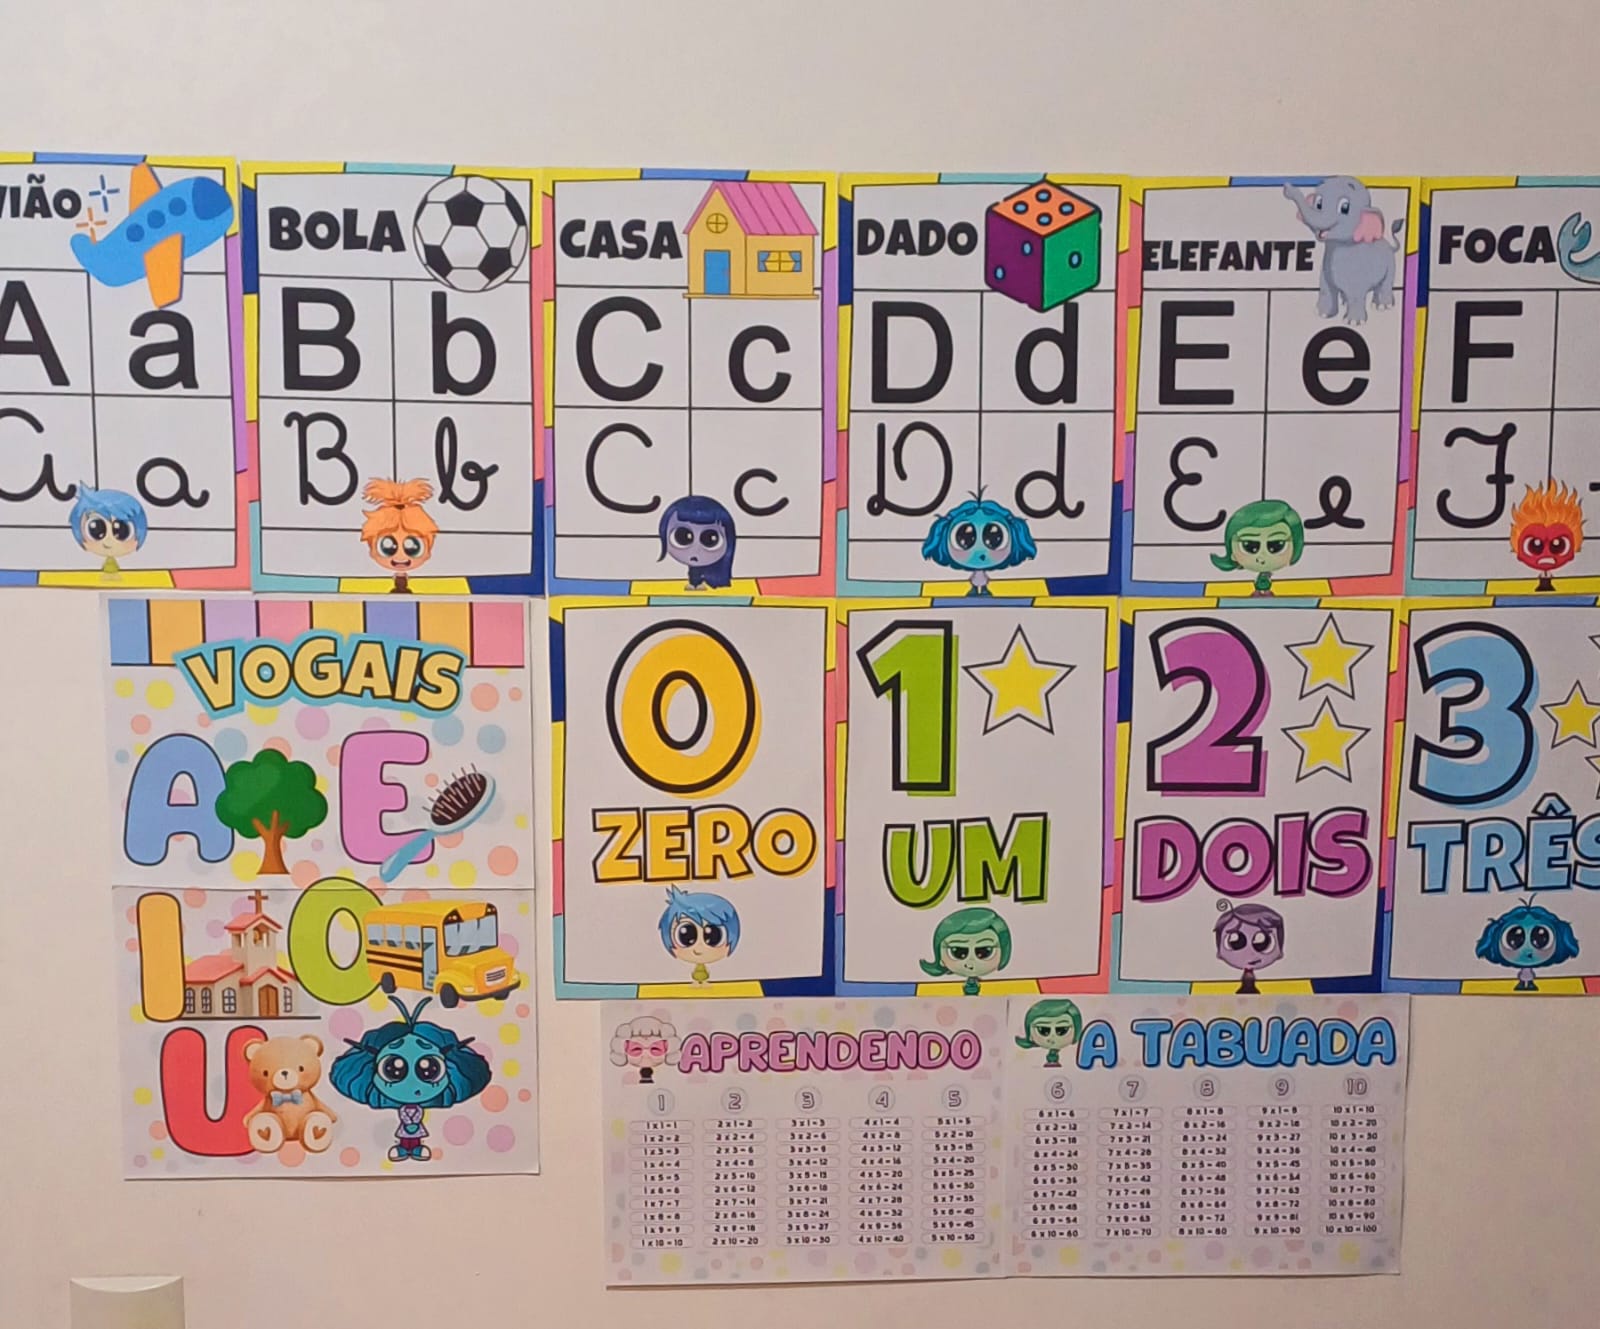 VIÃO
A a
A a
BOLA
B b
B b
CASA
C c
C c
DADO
D d
D d
ELEFANTE
E e
E e
FOCA
F
F
VOGAIS
A E
I O
U
0
ZERO
1
UM
2
DOIS
3
TRÊS
APRENDENDO
1 2 3 4 5
1 x 1 = 1 2 x 1 = 2 3 x 1 = 3 4 x 1 = 4 5 x 1 = 5
1 x 2 = 2 2 x 2 = 4 3 x 2 = 6 4 x 2 = 8 5 x 2 = 10
1 x 3 = 3 2 x 3 = 6 3 x 3 = 9 4 x 3 = 12 5 x 3 = 15
1 x 4 = 4 2 x 4 = 8 3 x 4 = 12 4 x 4 = 16 5 x 4 = 20
1 x 5 = 5 2 x 5 = 10 3 x 5 = 15 4 x 5 = 20 5 x 5 = 25
1 x 6 = 6 2 x 6 = 12 3 x 6 = 18 4 x 6 = 24 5 x 6 = 30
1 x 7 = 7 2 x 7 = 14 3 x 7 = 21 4 x 7 = 28 5 x 7 = 35
1 x 8 = 8 2 x 8 = 16 3 x 8 = 24 4 x 8 = 32 5 x 8 = 40
1 x 9 = 9 2 x 9 = 18 3 x 9 = 27 4 x 9 = 36 5 x 9 = 45
1 x 10 = 10 2 x 10 = 20 3 x 10 = 30 4 x 10 = 40 5 x 10 = 50
A TABUADA
6 7 8 9 10
6 x 1 = 6 7 x 1 = 7 8 x 1 = 8 9 x 1 = 9 10 x 1 = 10
6 x 2 = 12 7 x 2 = 14 8 x 2 = 16 9 x 2 = 18 10 x 2 = 20
6 x 3 = 18 7 x 3 = 21 8 x 3 = 24 9 x 3 = 27 10 x 3 = 30
6 x 4 = 24 7 x 4 = 28 8 x 4 = 32 9 x 4 = 36 10 x 4 = 40
6 x 5 = 30 7 x 5 = 35 8 x 5 = 40 9 x 5 = 45 10 x 5 = 50
6 x 6 = 36 7 x 6 = 42 8 x 6 = 48 9 x 6 = 54 10 x 6 = 60
6 x 7 = 42 7 x 7 = 49 8 x 7 = 56 9 x 7 = 63 10 x 7 = 70
6 x 8 = 48 7 x 8 = 56 8 x 8 = 64 9 x 8 = 72 10 x 8 = 80
6 x 9 = 54 7 x 9 = 63 8 x 9 = 72 9 x 9 = 81 10 x 9 = 90
6 x 10 = 60 7 x 10 = 70 8 x 10 = 80 9 x 10 = 90 10 x 10 = 100